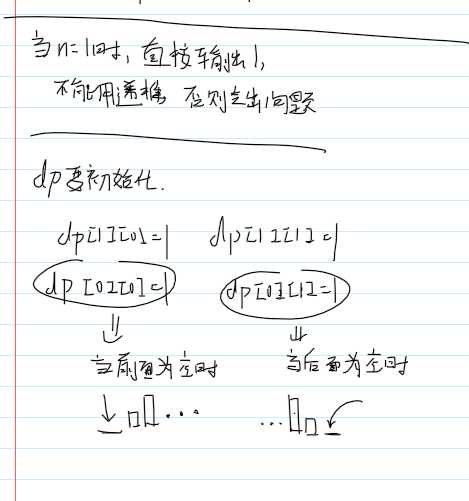 当n=1时，直接输出1，
不能用递推 否则会出问题
dp要初始化.
dp[1][0]=1 dp[1][1]=1
dp[0][0]=1 dp[0][1]=1
当前面为空时 当后面为空时
...
...